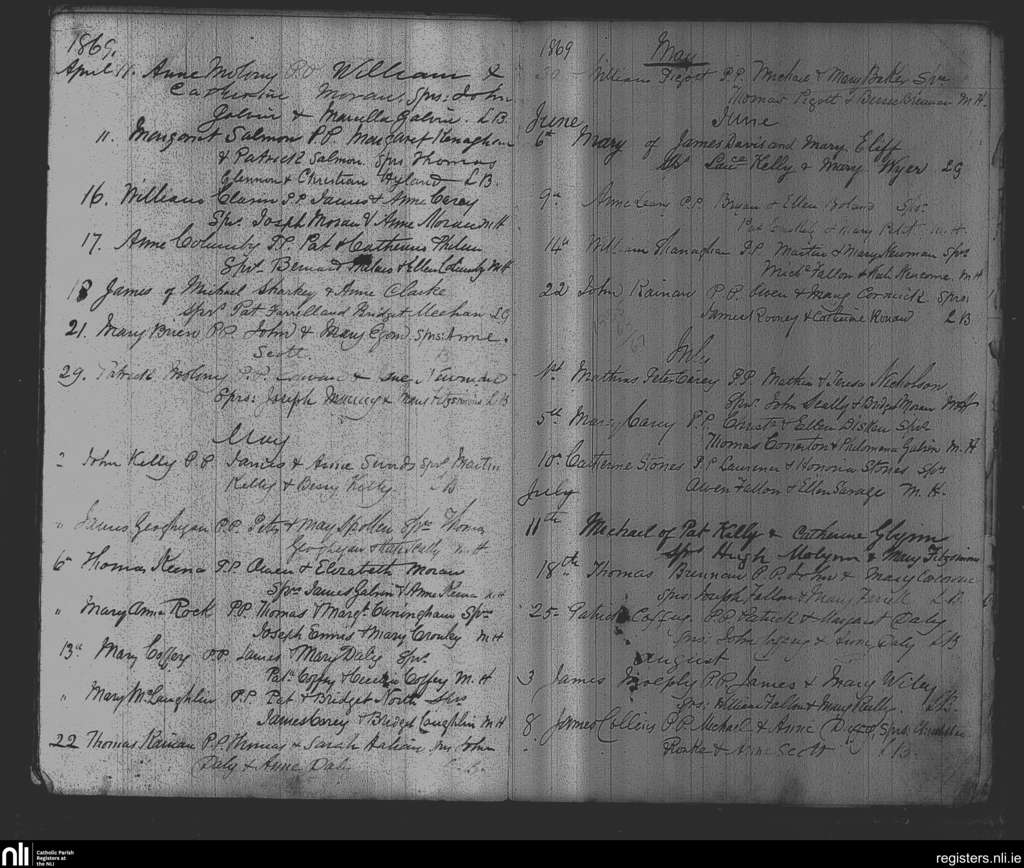 1869.
April 11. Anne Molony P.P. William &
Catherine Moran, Sprs: John
Galvin & Marcella Galvin. L B
11. Margaret Salmon P.P. Margaret Kenaghan
& Patrick Salmon. Sprs Thomas
Glennon & Christian Hyland L B.
16. William Clavin P.P. James & Anne Carey
Sprs. Joseph Moran & Anne Moran M H
17. Anne Columby P.P. Pat & Catherine
Sprs. Bernard & Ellen Columby M H
18 James of Michael Sharkey & Anne Clarke
Sprs Pat Farrell and Bridget Meehan L G
21. Mary Brien P.P. John & Mary Egan. Sprs: Anne
Scott.
29. Patrick Molony P.P. &
Sprs: Joseph Murray & Mary Fitzsimons L B
May
2 John Kelly P.P. James & Anne Swords Sprs Martin
Kelly & Bessy Kelly. L B
" James Geoghegan P.P. Peter & Mary Spollen Sprs Thomas
Geoghegan & M. H
6th Thomas Keena P.P. Owen & Elizabeth Moran
Sprs James Galvin & Anne Keena M H
" Mary Anne Rock P.P. Thomas & Margt. Cuningham Sprs
Joseph Ennis & Mary Crowley M H
13th Mary Coffey P.P. James & Mary Daly Sprs.
Patk. Coffey & Coffey M. H
" Mary McLaughlin P.P. Pat & Bridget North Sprs
James Carey & Bridget Loughlin M H
22 Thomas Kainan P.P. Thomas & Sarah Sprs John
Daly & Anne Daly L. B.
1869 May
30 William Pigott P.P. Michael & Mary Baker Sprs
Thomas Pigott & Bessie Brennan M H.
June June
6th Mary of James Davis and Mary Cliff
Sprs Laue Kelly & Mary Wyer L G
9th Anne Leavy P.P. Bryan & Ellen Boland Sprs.
Pat & Mary M. H.
14th William Flanaghan P.P. Martin & Mary Newman Sprs
Michl Fallon & M H
22 John Kainan P.P. Owen & Mary Cormick Sprs:
James Rooney & Catherine L B
July
1st Mathias Peter Carey P.P. Mathew & Teresa Nicholson
Sprs. John Scally & Bridget Moran M H
5th Mary Carey P.P. & Ellen Sprs
Thomas Conerton & Philomena Galvin M. H
10th Catherine Stones P.P. Laurence & Honoria Stones Sprs
Owen Fallon & Ellen Savage M. H.
July
11th Michael of Pat Kelly & Catherine Glynn
Sprs Hugh Molynn & Mary Fitzsimons
18th Thomas Brennan P.P. John & Mary Corcoran
Sprs: Joseph Fallon & Mary Farrell L B.
25th Patrick Coffey. P.P. Patrick & Margaret Daly
Sprs: John Coffey & Anne Daly L B
August
3 James P.P. James & Mary Wiley
Sprs: William Fallon & Mary Reilly. L B.
8. James Collins P.P. Michael & Anne Sprs:
Rourke & Anne Scott L B.
nli Catholic Parish
Registers at
the NLI
registers.nli.ie